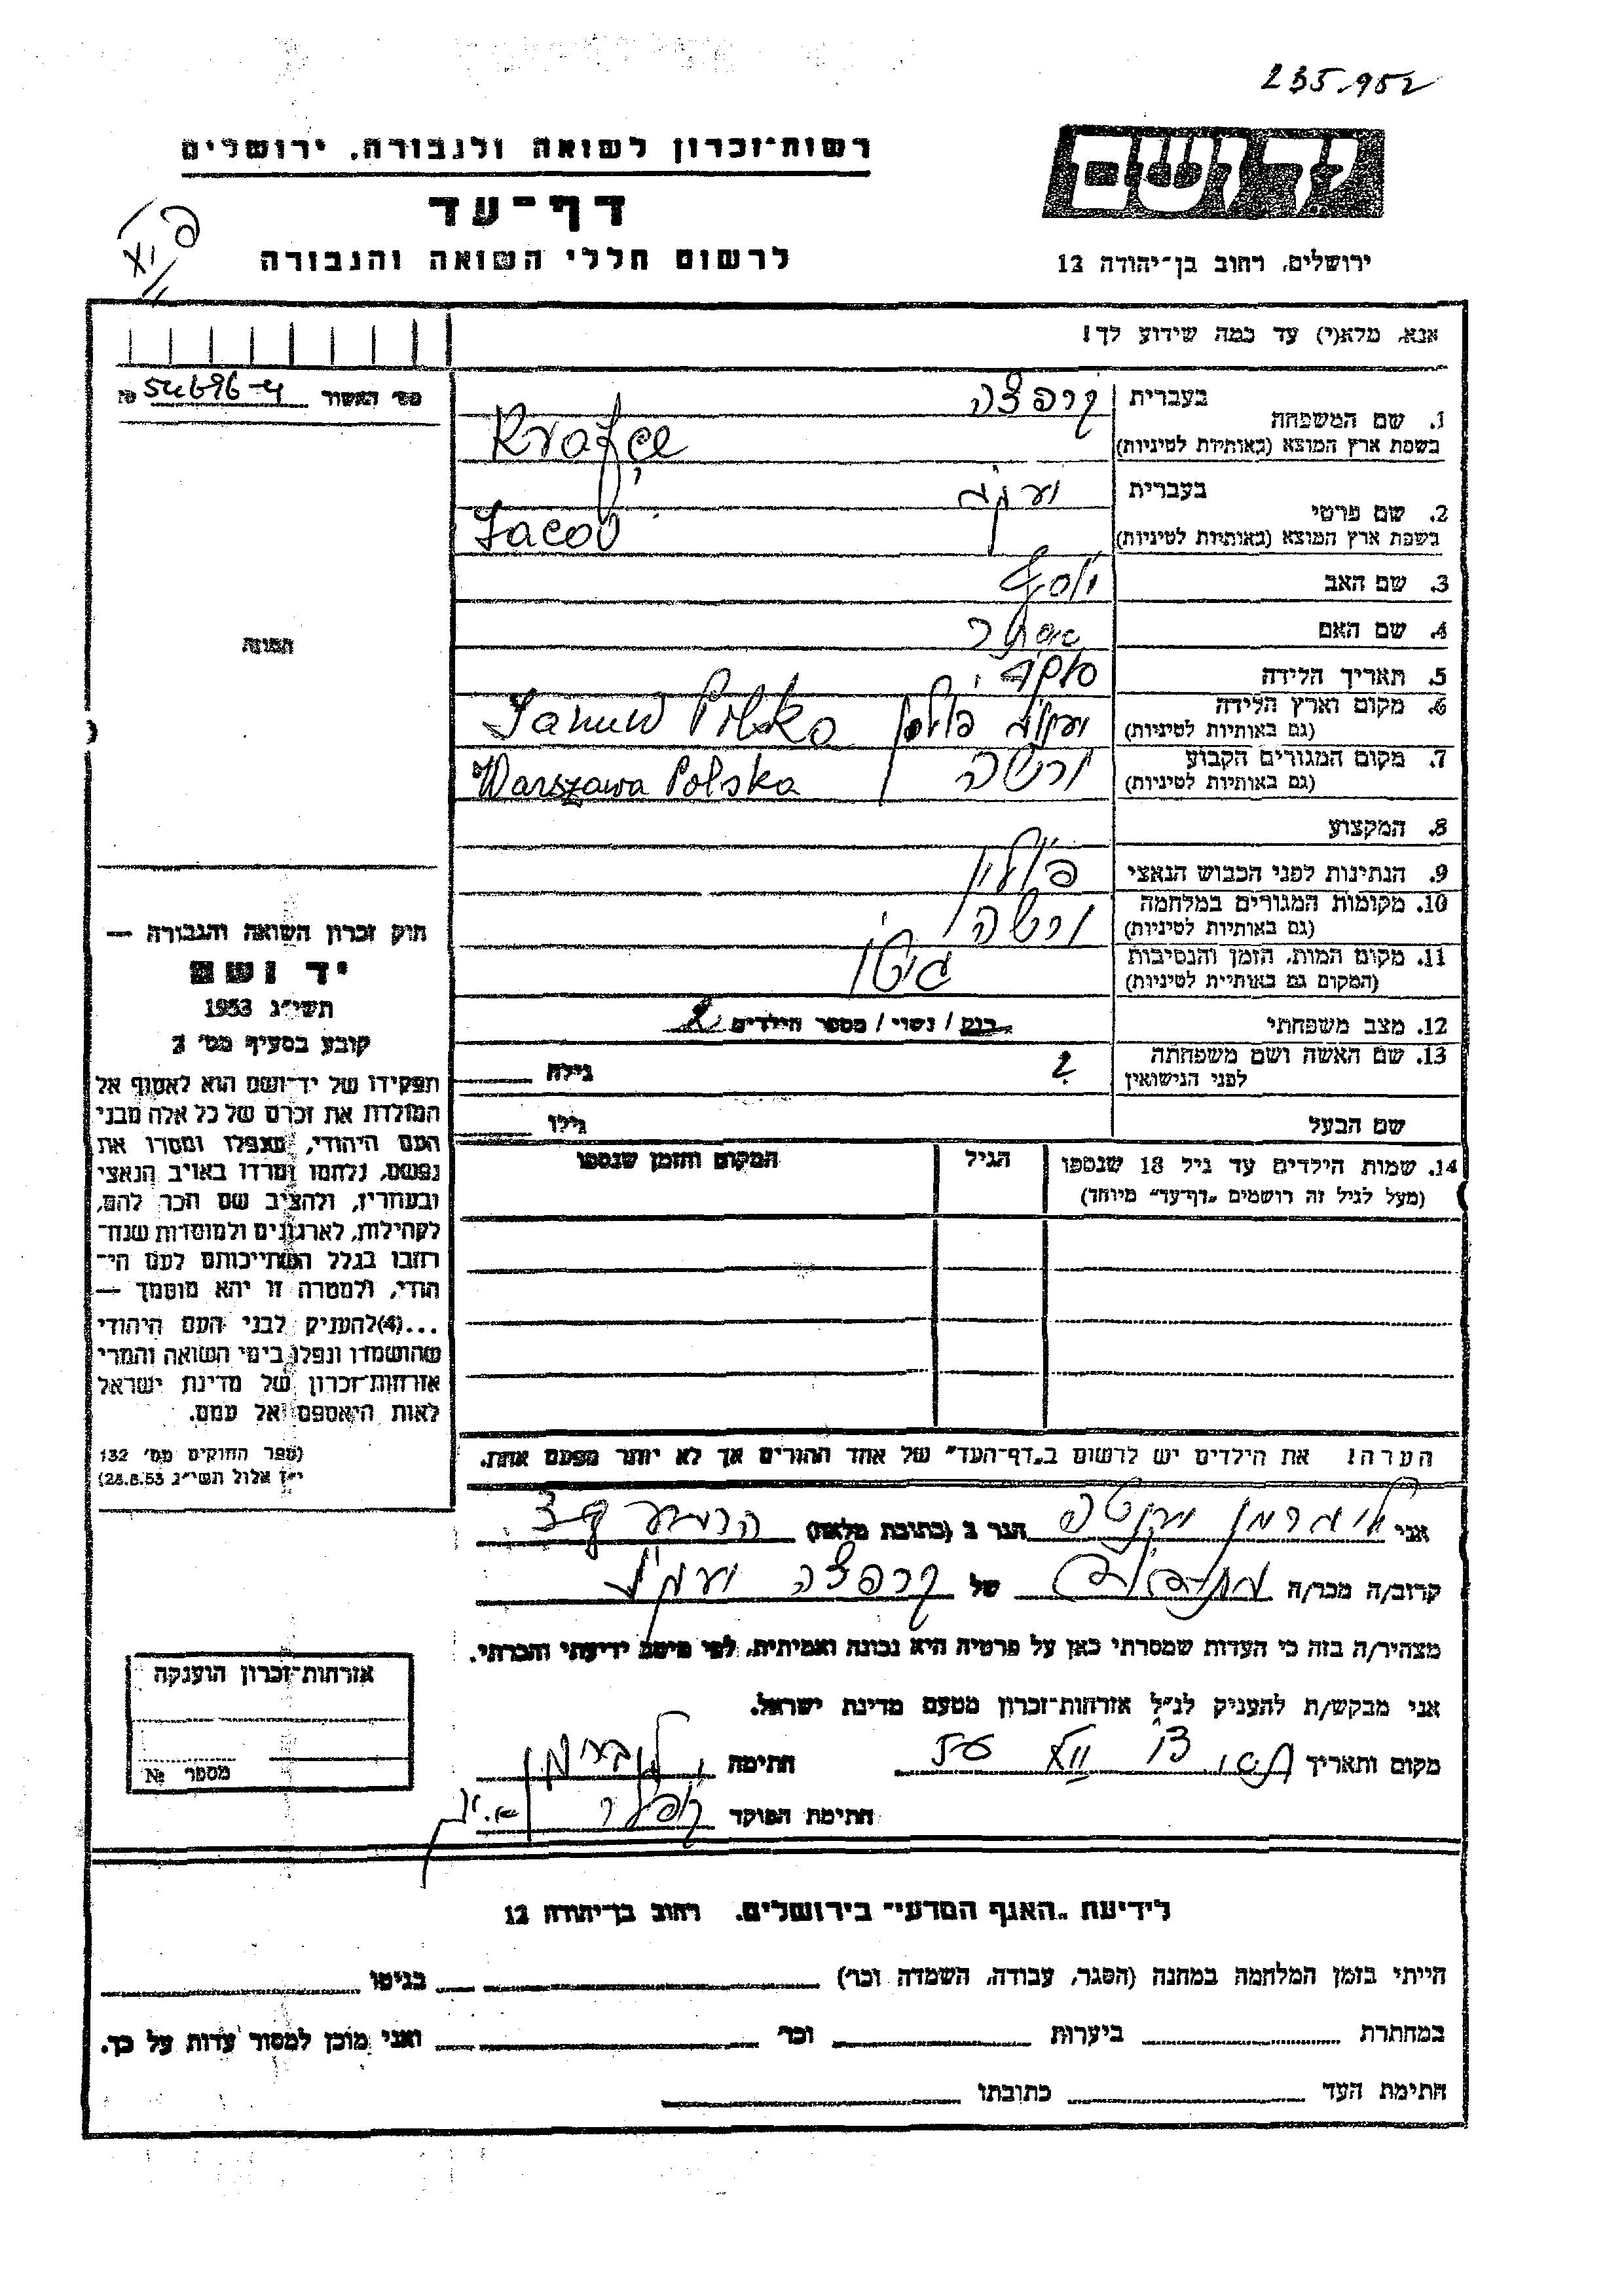 235.952
רשות-זכרון לשואה ולגבורה, ירושלים
דף-עד
לרשום חללי השואה והגבורה
ירושלים, רחוב בן-יהודה 12
אנא, מלא(י) עד כמה שידוע לך!
מס׳ האשור № 54696-4
1. שם המשפחה
בעברית
קרפצה
בשפת ארץ המוצא (באותיות לטיניות)
2. שם פרטי
בעברית
יעקב
בשפת ארץ המוצא (באותיות לטיניות)
Jacob
3. שם האב יוסף
4. שם האם אסתר
5. תאריך הלידה
6. מקום וארץ הלידה
(גם באותיות לטיניות)
פולין Polska
7. מקום המגורים הקבוע ורשה
(גם באותיות לטיניות)
Warszawa Polska
8. המקצוע
9. הנתינות לפני הכבוש הנאצי פולין
10. מקומות המגורים במלחמה ורשה
(גם באותיות לטיניות)
11. מקום המות, הזמן והנסיבות גיטו
(המקום גם באותיית לטיניות)
12. מצב משפחתי רווק / נשוי / מספר הילדים 2
13. שם האשה ושם משפחתה ? גילה
לפני הנישואין
שם הבעל גילו
14. שמות הילדים עד גיל 18 שנספו הגיל המקום והזמן שנספו
(מעל לגיל זה רושמים „דף-עד״ מיוחד)
הערה! את הילדים יש לרשום ב„דף-העד״ של אחד ההורים אך לא יותר מפעם אחת.
התמונה
חוק זכרון השואה והגבורה —
יד ושם
תשי״ג 1953
קובע בסעיף מס׳ 2
תפקידו של יד-ושם הוא לאסוף אל
המולדת את זכרם של כל אלה מבני
העם היהודי, שנפלו ומסרו את
נפשם, נלחמו ומרדו באויב הנאצי
ובעוזריו, ולהציב שם וזכר להם,
לקהילות, לארגונים ולמוסדות שנח־
רבו בגלל השתייכותם לעם הי־
הודי, ולמטרה זו יהא מוסמך —
...(4)להעניק לבני העם היהודי
שהושמדו ונפלו בימי השואה והמרי
אזרחות-זכרון של מדינת ישראל
לאות היאספם אל עמם.
(ספר החוקים מס׳ 132
י״ז אלול תשי״ג 28.8.53)
אני הגר ב (כתובת מלאה)
קרוב/ה מכר/ה של קרפצה יעקב
מצהיר/ה בזה כי העדות שמסרתי כאן על פרטיה היא נכונה ואמיתית, לפי מיטב ידיעתי והכרתי.
אני מבקש/ת להעניק לנ״ל אזרחות-זכרון מטעם מדינת ישראל.
מקום ותאריך חתימה
חתימת הפוקד
אזרחות-זכרון הוענקה
מספר №
לידיעת „האגף המדעי״ בירושלים, רחוב בן-יהודה 12
הייתי בזמן המלחמה במחנה (הסגר, עבודה, השמדה וכו׳) בגיטו
במחתרת ביערות וכו׳ ואני מוכן למסור עדות על כך.
חתימת העד כתובתו